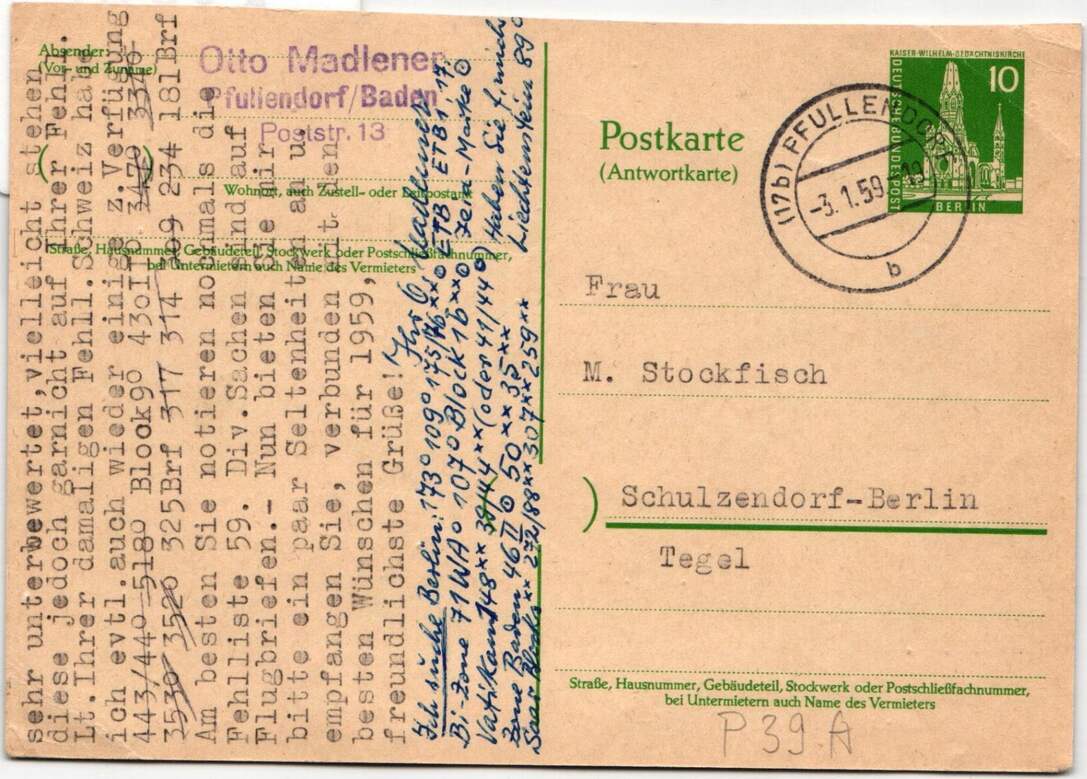 Absender:
(Vor- und Zuname)
Otto Madlener
Pfullendorf/Baden
Poststr. 13
Wohnort, auch Zustell- oder Leitpostamt
(Straße, Hausnummer, Gebäudeteil, Stockwerk oder Postschließfachnummer,
bei Untermietern auch Name des Vermieters
sehr unterbewertet,vielleicht stehen
diese jedoch garnicht auf Ihrer Fehll.
Lt.Ihrer damaligen Fehll.Schweiz habe
ich evtl.auch wieder einige z.Verfügung
443/440 5180 Block9o 43oII 3470 3340
3530 3520 325Brf 317 314 309 234 181Brf
Am besten Sie notieren nochmals die
Fehlliste 59. Div.Sachen sind auf
Flugbriefen.- Nun bieten Sie mir
bitte ein paar Seltenheiten an u.
empfangen Sie, verbunden mit den
besten Wünschen für 1959,
freundlichste Grüße!
Ihr O. Madlener
Ich suche Berlin: 173o 109o 175/76xxo ETB ETB1 17.
Bi-Zone 71WAo 107o Block 1bxxo 7er-Marke o
Vatikan 148xx 39/44xx (oder 41/44o) Haben Sie Finnish
Zone Baden 46II o 50xx 35xx Liechtenstein 89o
Saar Blocks xx 272/88xx 307xx 259xx
KAISER-WILHELM-GEDÄCHTNISKIRCHE
10
DEUTSCHE BUNDESPOST
BERLIN
(17b) PFULLENDORF
-3.1.59.-19
b
Postkarte
(Antwortkarte)
Frau
M. Stockfisch
Schulzendorf-Berlin
Tegel
Straße, Hausnummer, Gebäudeteil, Stockwerk oder Postschließfachnummer,
bei Untermietern auch Name des Vermieters
P 39 A